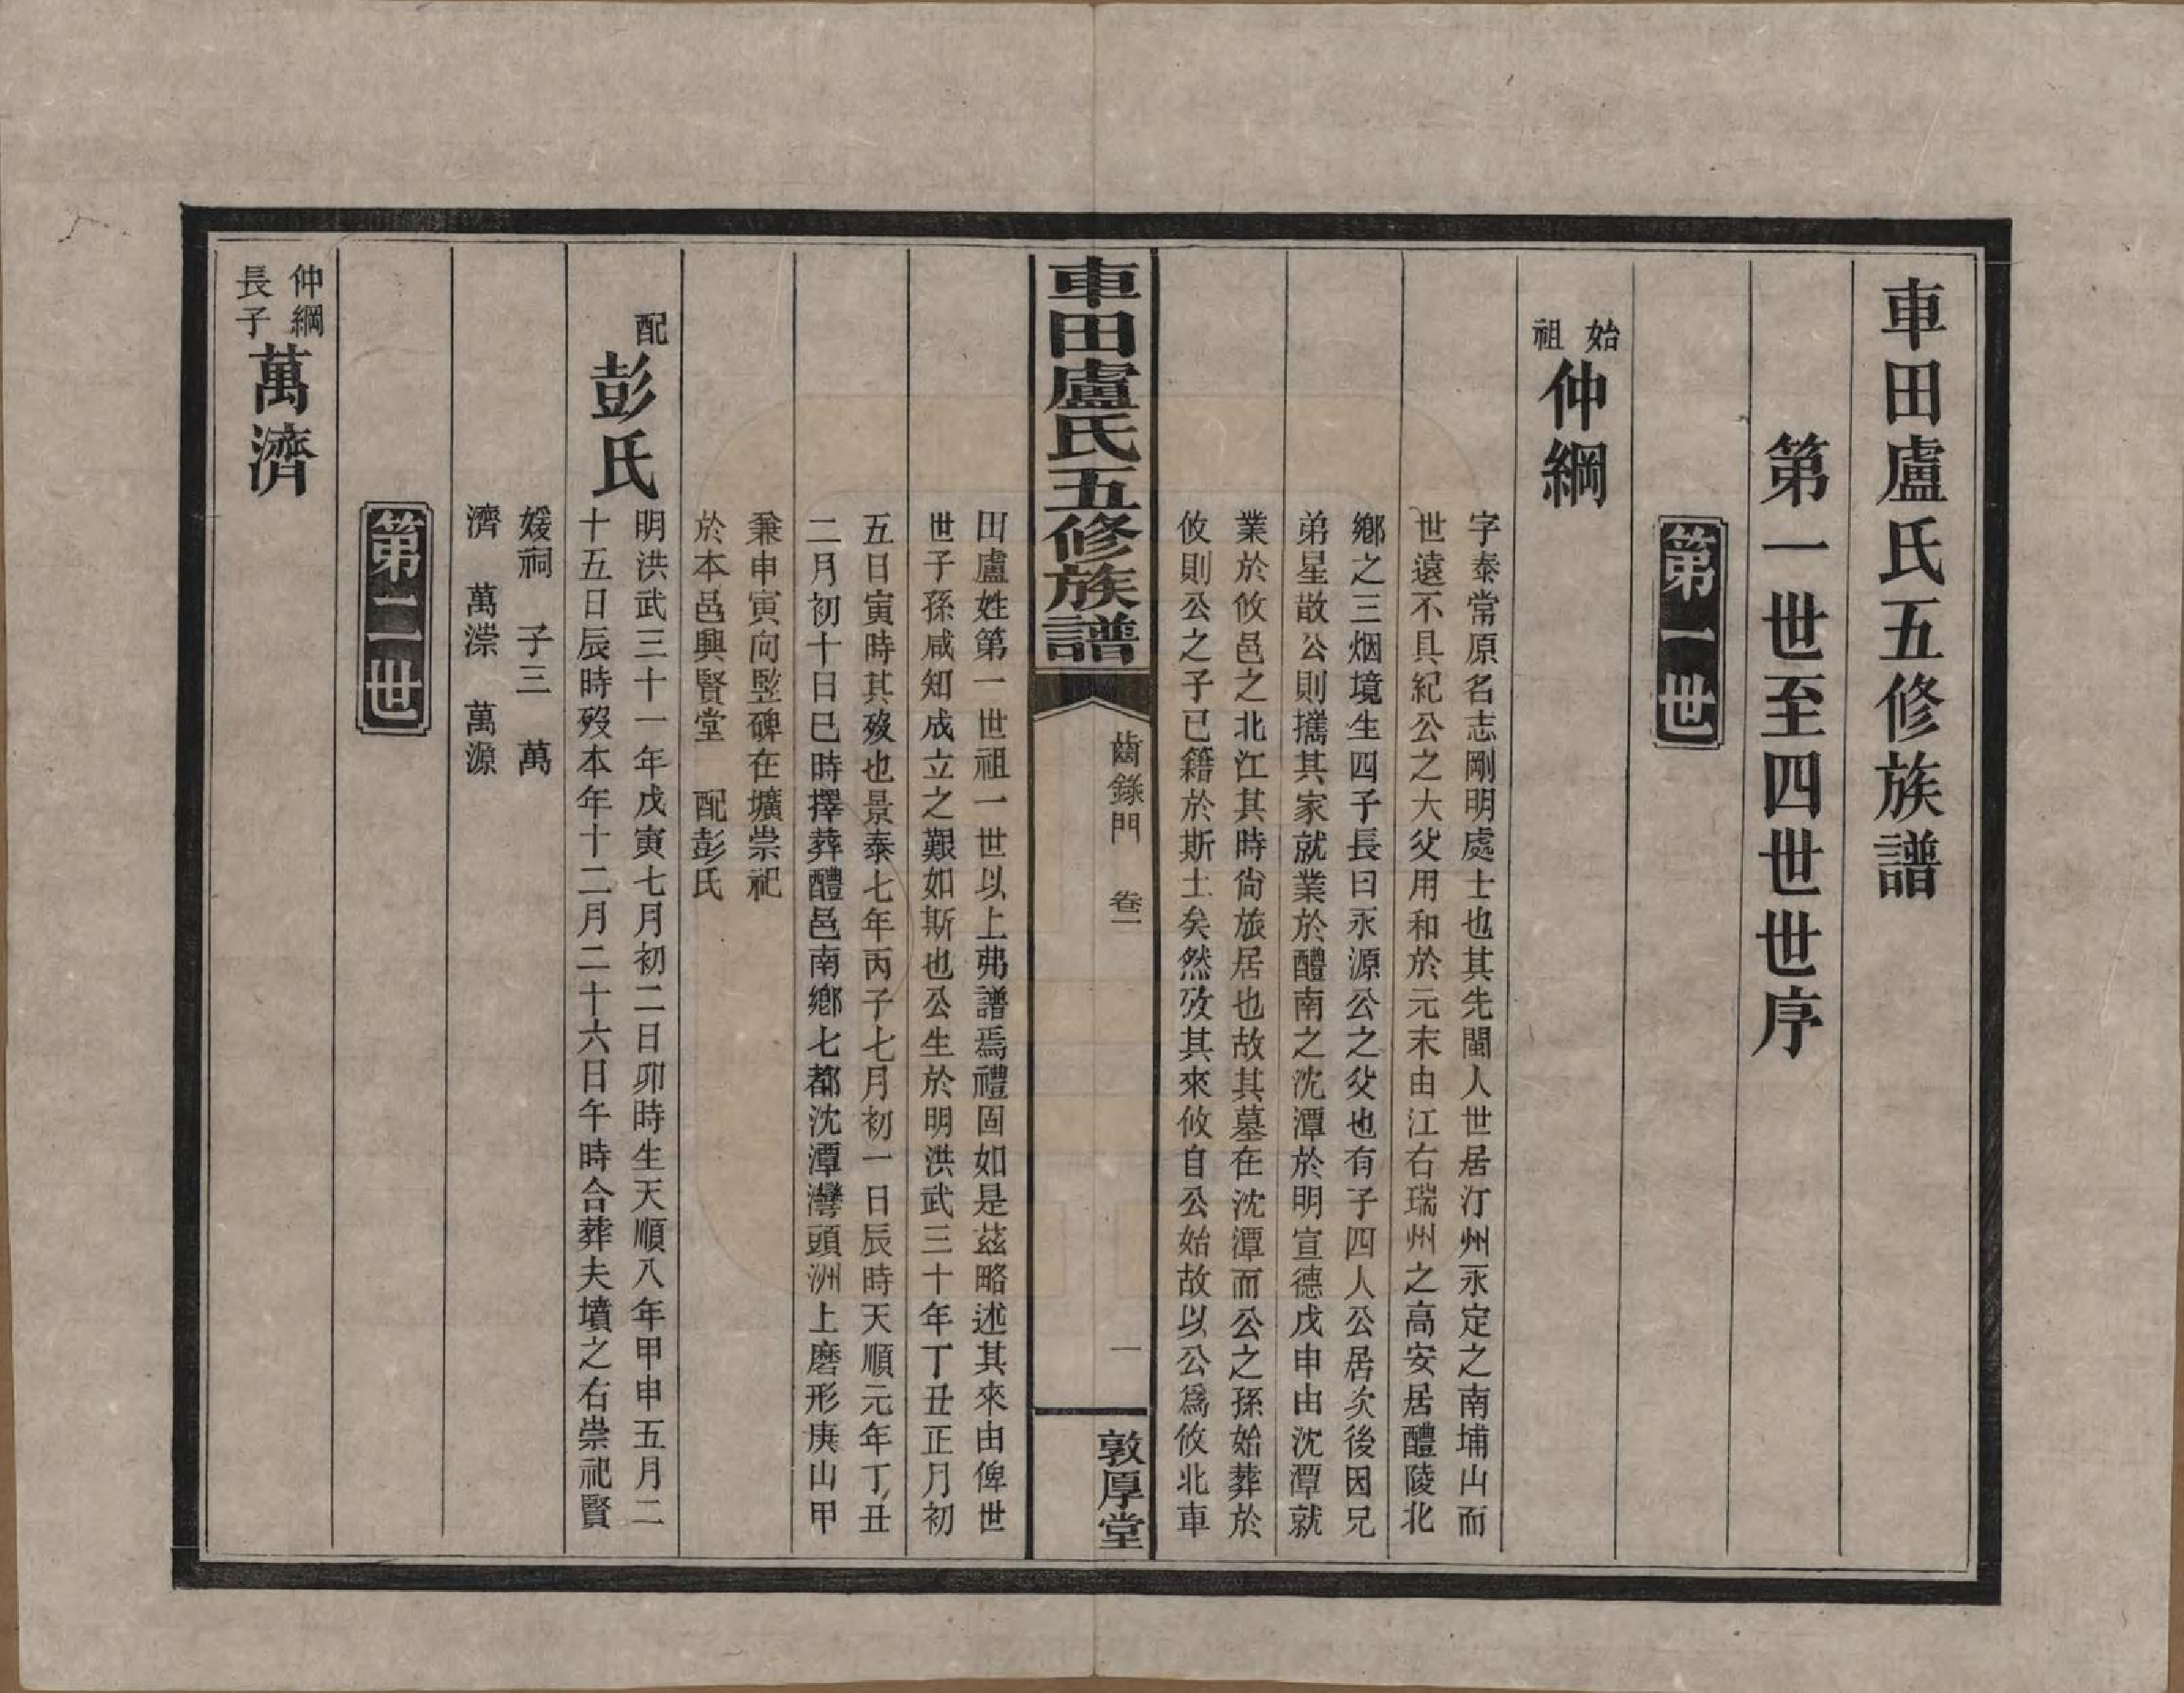 車田盧氏五修族譜
第一世至四世世序
第一世
始祖
仲綱
字泰常原名志剛明處士也其先閩人世居汀州永定之南埔山而
世遠不具紀公之大父用和於元末由江右瑞州之高安居醴陵北
鄉之三烟境生四子長曰永源公之父也有子四人公居次後因兄
弟星散公則攜其家就業於醴南之沈潭於明宣德戊申由沈潭就
業於攸邑之北江其時尙旅居也故其墓在沈潭而公之孫始葬於
攸則公之子已籍於斯土矣然攷其來攸自公始故以公爲攸北車
車田盧氏五修族譜
齒錄門 卷一
一
敦厚堂
田盧姓第一世祖一世以上弗譜焉禮固如是茲略述其來由俾世
世子孫咸知成立之艱如斯也公生於明洪武三十年丁丑正月初
五日寅時其歿也景泰七年丙子七月初一日辰時天順元年丁丑
二月初十日巳時擇葬醴邑南鄉七都沈潭灣頭洲上磨形庚山甲
兼申寅向竪碑在壙崇祀
於本邑興賢堂 配彭氏
配
彭氏
明洪武三十一年戊寅七月初二日卯時生天順八年甲申五月二
十五日辰時歿本年十二月二十六日午時合葬夫墳之右崇祀賢
媛祠 子三 萬
濟 萬滐 萬源
第二世
仲綱
長子
萬濟